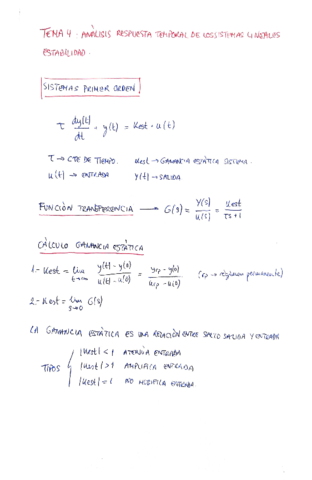 TEMA 4. ANÁLISIS RESPUESTA TEMPORAL DE LOS SISTEMAS LINEALES
ESTABILIDAD.
SISTEMAS PRIMER ORDEN
τ dy(t)/dt + y(t) = Kest · u(t)
τ → CTE DE TIEMPO. Kest → GANANCIA ESTÁTICA SISTEMA.
u(t) → ENTRADA Y(t) → SALIDA
FUNCIÓN TRANSFERENCIA → G(s) = Y(s)/U(s) = Kest/(τs+1)
CÁLCULO GANANCIA ESTÁTICA
1.- Kest = lim t→∞ (y(t) - y(0))/(u(t) - u(0)) = (yrp - y(0))/(urp - u(0)) (rp → régimen permanente)
2.- Kest = lim s→0 G(s)
LA GANANCIA ESTÁTICA ES UNA RELACIÓN ENTRE SALTO SALIDA Y ENTRADA
|Kest| < 1 ATENÚA ENTRADA
TIPOS |Kest| > 1 AMPLIFICA ENTRADA
|Kest| = 1 NO MODIFICA ENTRADA